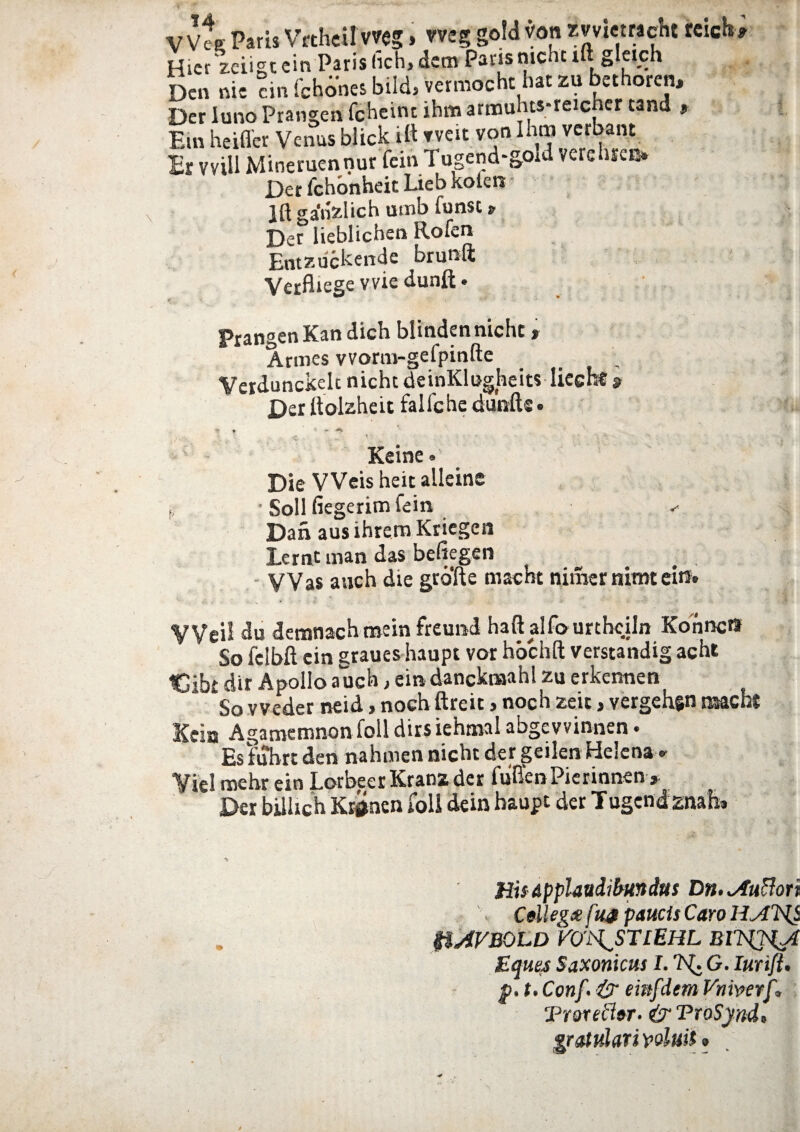 14
VVeg Paris Vrtheil vveg, vveg gold von zvvietracht reich,
Hier zeiigt ein Paris sich, dem Paris nicht ist gleich
Den nie ein schönes bild, vermocht hat zu bethoren,
Der Iuno Prangen scheint ihm armuhts-reicher tand,
Ein heisser Venus blick ist vveit von Ihm verbant
Er vvill Mineruen nur sein Tugend-gold verehren.
Der schönheit Lieb kosen
Ist gänzlich umb sunst,
Der lieblichen Rosen
Entzückende brunst
Verfliege vvie dunst.
Prangen Kan dich blinden nicht,
Armes vvorm-gespinste
Verdunckelt nicht dein Klugheits liecht,
Der stolzheit falsche dünste.
Keine.
Die VVeis heit alleine
Soll siegerim sein
Dan aus ihrem Kriegen
Lernt man das besiegen
VVas auch die gröste macht nimer nimt ein.
VVeil du demnach mein freund hast also urtheiln Konnen
So selbst ein graues haupt vor höchst verständig acht
Gibt dir Apollo auch, ein danckmahl zu erkennen
So vveder neid, noch streit, noch zeit, vergehen macht
Kein Agamemnon soll dirs iehmal abgevvinnen.
Es führt den nahmen nicht der geilen Helena.
Viel mehr ein Lorbeer Kranz der süssen Pierinnen,
Der billich Krönen soll dein haupt der Tugend znah.
His applaudibundus Dn. Auctori
Collegæ suo paucis Caro HANS
HAVBOLD VON STIEHL BINNA
Eques Saxonicus I. N. G. Iurist.
p. t. Cons. & eiusdem Vnivers.
Prorector. & ProSynd.
gratulari voluit.